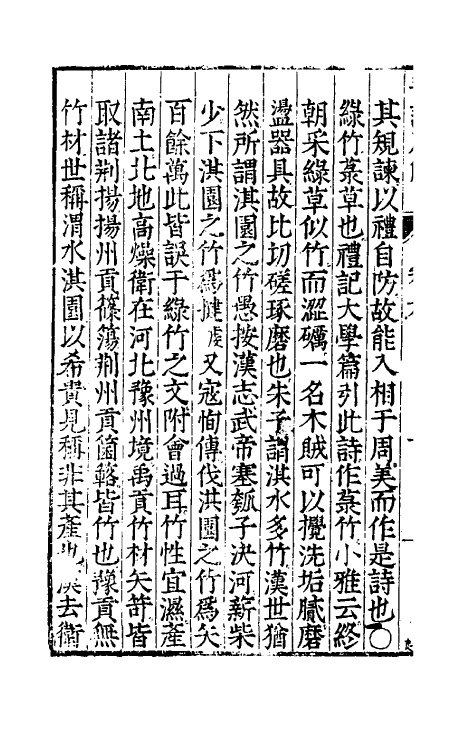 其規諫以禮自防故能入相于周美而作是詩也○
綠竹菉草也禮記大學篇引此詩作菉竹小雅云終
朝采綠草似竹而澀礪一名木賊可以攪洗垢膩磨
盪器具故比切磋琢磨也朱子謂淇水多竹漢世猶
然所謂淇園之竹愚按漢志武帝塞瓠子決河薪柴
少下淇園之竹爲揵又寇恂傳伐淇園之竹爲矢
百餘萬此皆誤于綠竹之文附會過耳竹性宜濕產
南土北地高燥衛在河北豫州境禹貢竹材矢笴皆
取諸荆揚揚州貢篠簜荆州貢箘簵皆竹也豫貢無
竹材世稱渭水淇園以希貴見稱非其產也漢去衛